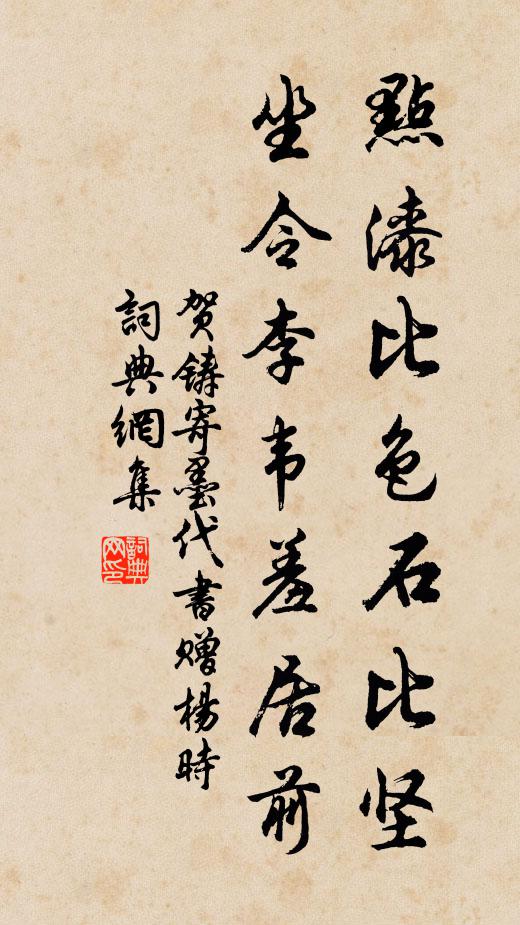 點漆比色石比坚
坐令李韦羞居前
贺鑄寄墨代書赠楊時
詞典網集
詞典网印